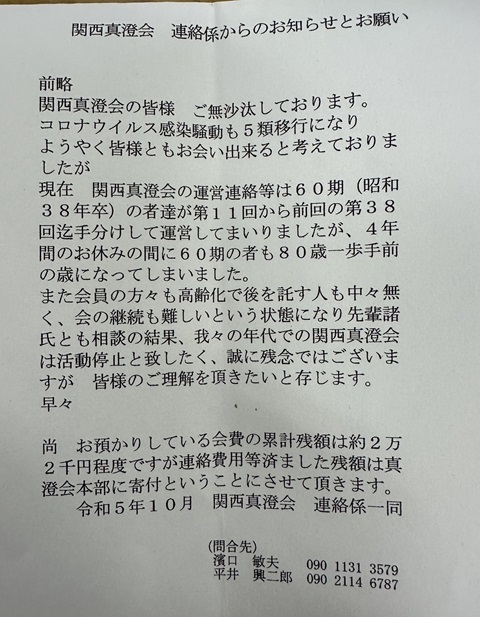 関西真澄会　連絡係からのお知らせとお願い
前略
関西真澄会の皆様　ご無沙汰しております。
コロナウイルス感染騒動も５類移行になり
ようやく皆様ともお会い出来ると考えておりま
したが
現在　関西真澄会の運営連絡等は６０期（昭和
３８年卒）の者達が第１１回から前回の第３８
回迄手分けして運営してまいりましたが、４年
間のお休みの間に６０期の者も８０歳一歩手前
の歳になってしまいました。
また会員の方々も高齢化で後を託す人も中々無
く、会の継続も難しいという状態になり先輩諸
氏とも相談の結果、我々の年代での関西真澄会
は活動停止と致したく、誠に残念ではございま
すが　皆様のご理解を頂きたいと存じます。
早々
尚　お預かりしている会費の累計残額は約２万
２千円程度ですが連絡費用等済ました残額は真
澄会本部に寄付ということにさせて頂きます。
令和５年１０月　関西真澄会　連絡係一同
(問合先)
濱口　敏夫　090 1131 3579
平井　興二郎　090 2114 6787